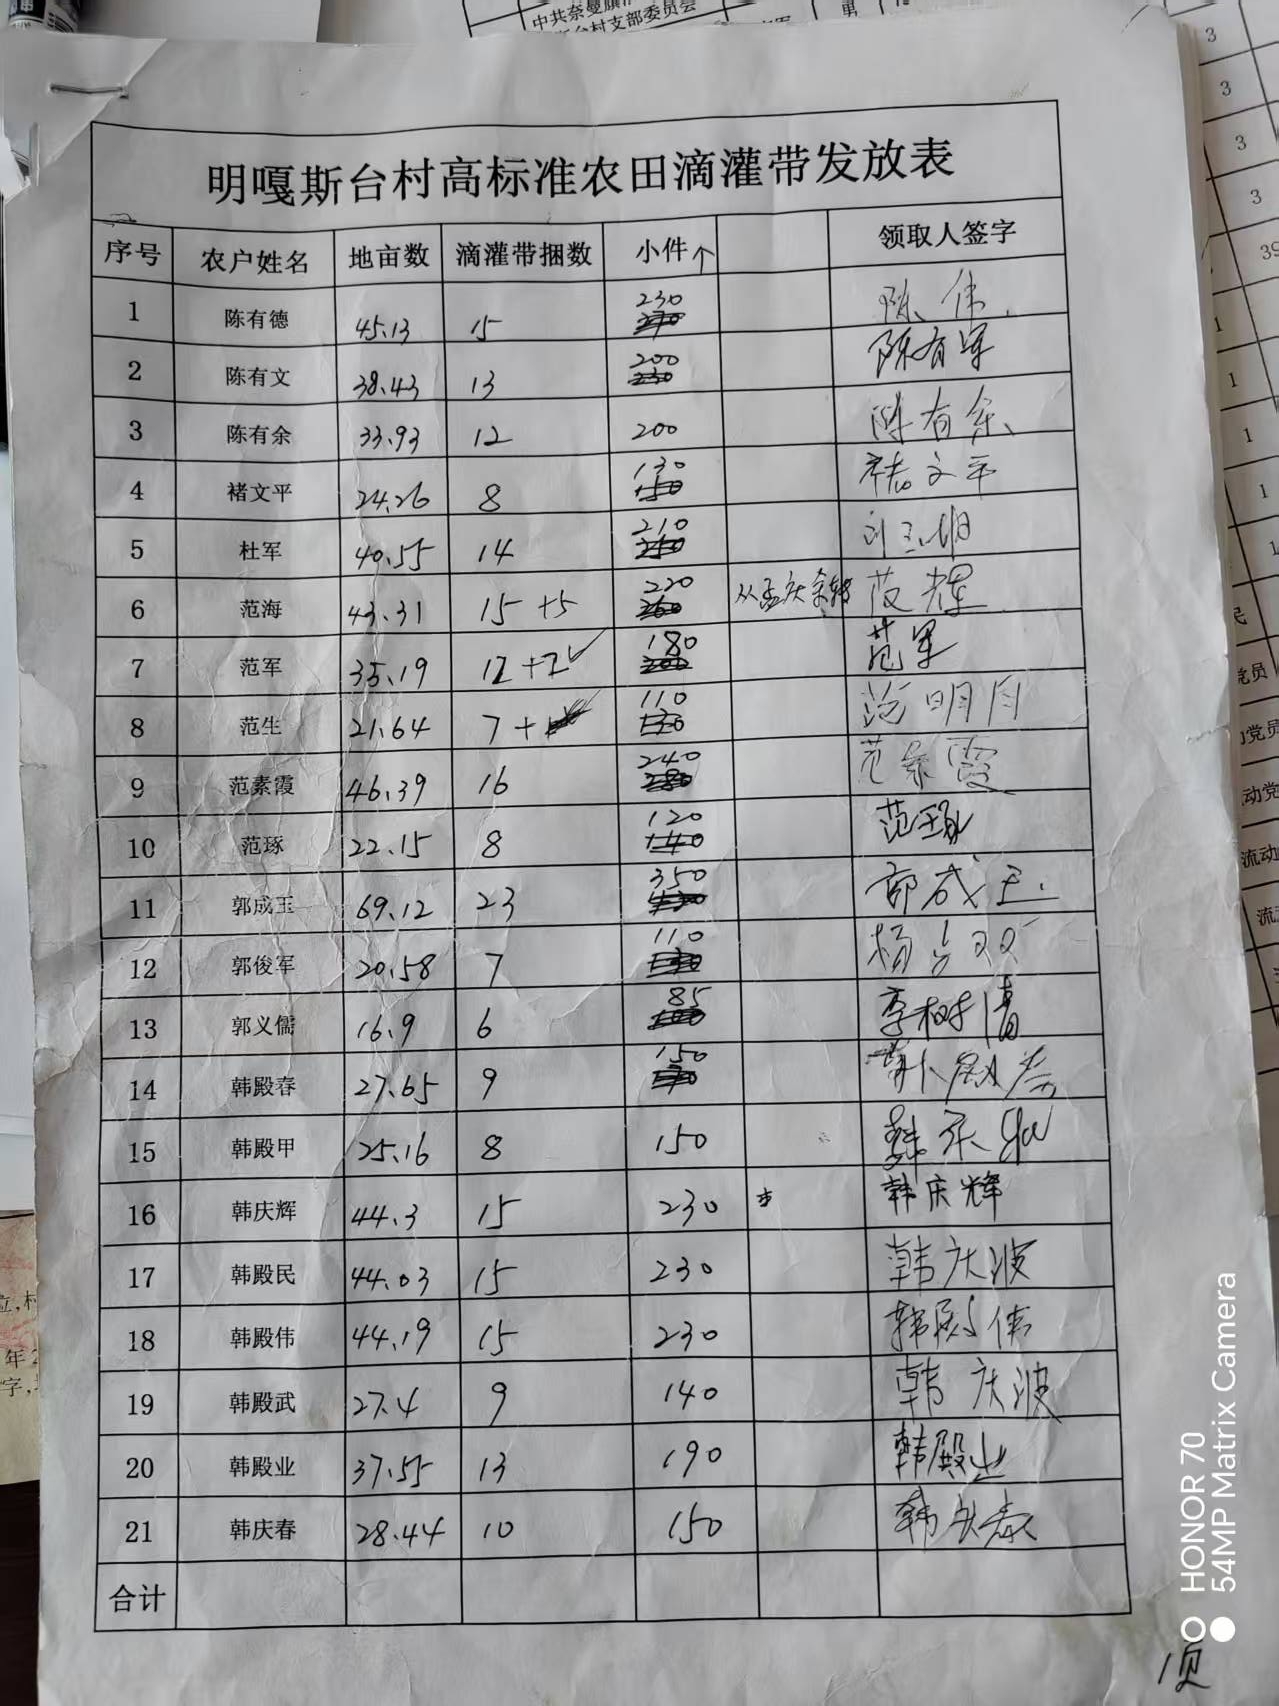 中共奈曼旗
台村支部委员会
男
明嘎斯台村高标准农田滴灌带发放表
序号 农户姓名 地亩数 滴灌带捆数 小件个 领取人签字
1 陈有德 45.13 15 230 陈伟
2 陈有文 38.43 13 200 陈有军
3 陈有余 33.93 12 200 陈有余
4 褚文平 24.26 8 130 褚文平
5 杜军 40.55 14 210
6 范海 43.31 15 +5 220 从孟庆余转 范辉
7 范军 35.19 12 +2 ✓ 180 范军
8 范生 21.64 7 + 110 范明月
9 范素霞 46.39 16 240 范素霞
10 范琢 22.15 8 120 范琢
11 郭成玉 69.12 23 350 郭成玉
12 郭俊军 20.58 7 110 杨占双
13 郭义儒 16.9 6 85 李树清
14 韩殿春 27.65 9 150 韩殿春
15 韩殿甲 25.16 8 150
16 韩庆辉 44.3 15 230 韩庆辉
17 韩殿民 44.03 15 230 韩庆波
18 韩殿伟 44.19 15 230 韩殿伟
19 韩殿武 27.4 9 140 韩庆波
20 韩殿业 37.55 13 190 韩殿业
21 韩庆春 28.44 10 150 韩庆春
合计
1页
HONOR 70
54MP Matrix Camera